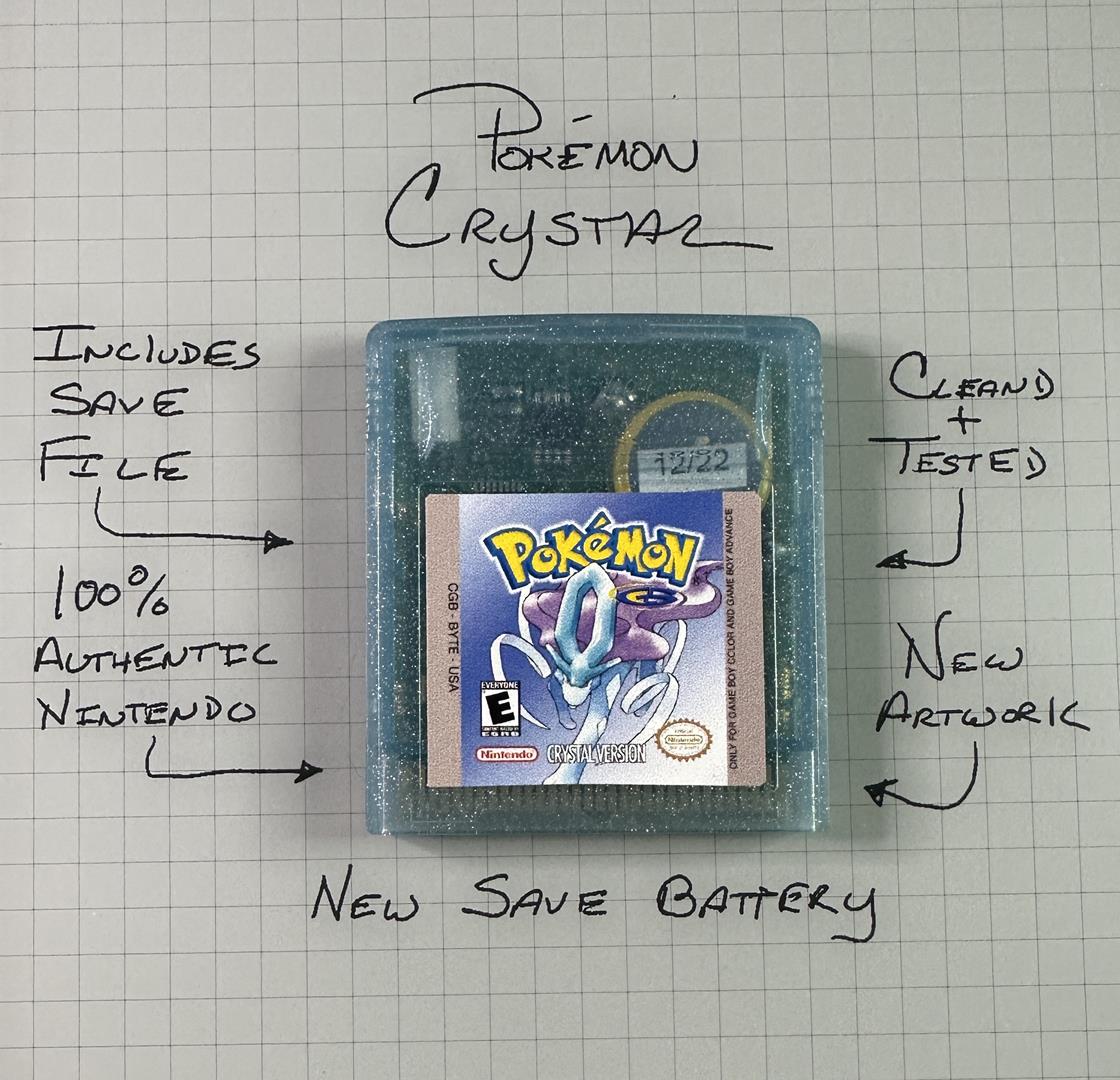 POKÉMON
CRYSTAL
INCLUDES
SAVE
FILE
CLEAND
+
TESTED
12/22
100%
AUTHENTIC
NINTENDO
POKéMON
CGB - BYTE - USA
ONLY FOR GAME BOY COLOR AND GAME BOY ADVANCE
EVERYONE
E
CONTENT RATED BY
ESRB
Nintendo
CRYSTAL VERSION
Nintendo
NEW
ARTWORK
NEW SAVE BATTERY